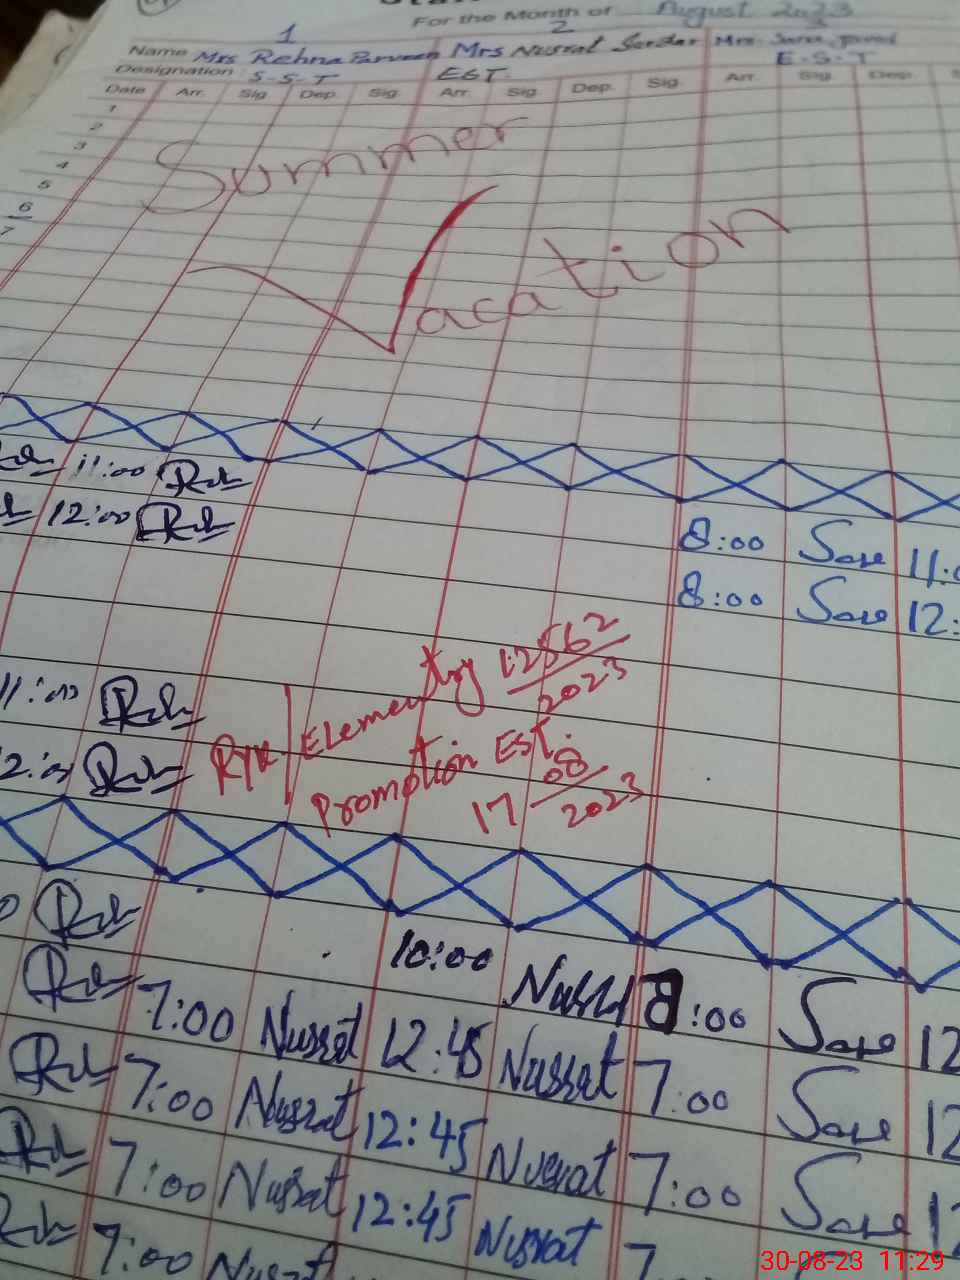 For the Month of August 2023
1 2 3
Name Mrs Rehna Parveen Mrs Nusrat Sardar Mrs.
Designation: S-S-T EST E-S-T
Date Arr. Sig Dep. Sig. Arr. Sig. Dep. Sig. Arr. Sig. Dep. S
1
2
3
4
5
6
7
Summer
Vacation
11:00
12:00
8:00 Sare 11:0
8:00 Sare 12:
11:00
RYK/Elementry 12562/2023
2:00
Promotion EST.
17 08/2023
10:00 Nusrat 8:00 Sare 12
7:00 Nusrat 12:45 Nusrat 7:00 Sare 12
7:00 Nusrat 12:45 Nusrat 7:00 Sare 1
7:00 Nusrat 12:45 Nusrat 7
7:00 Nusrat
30-08-23 11:29